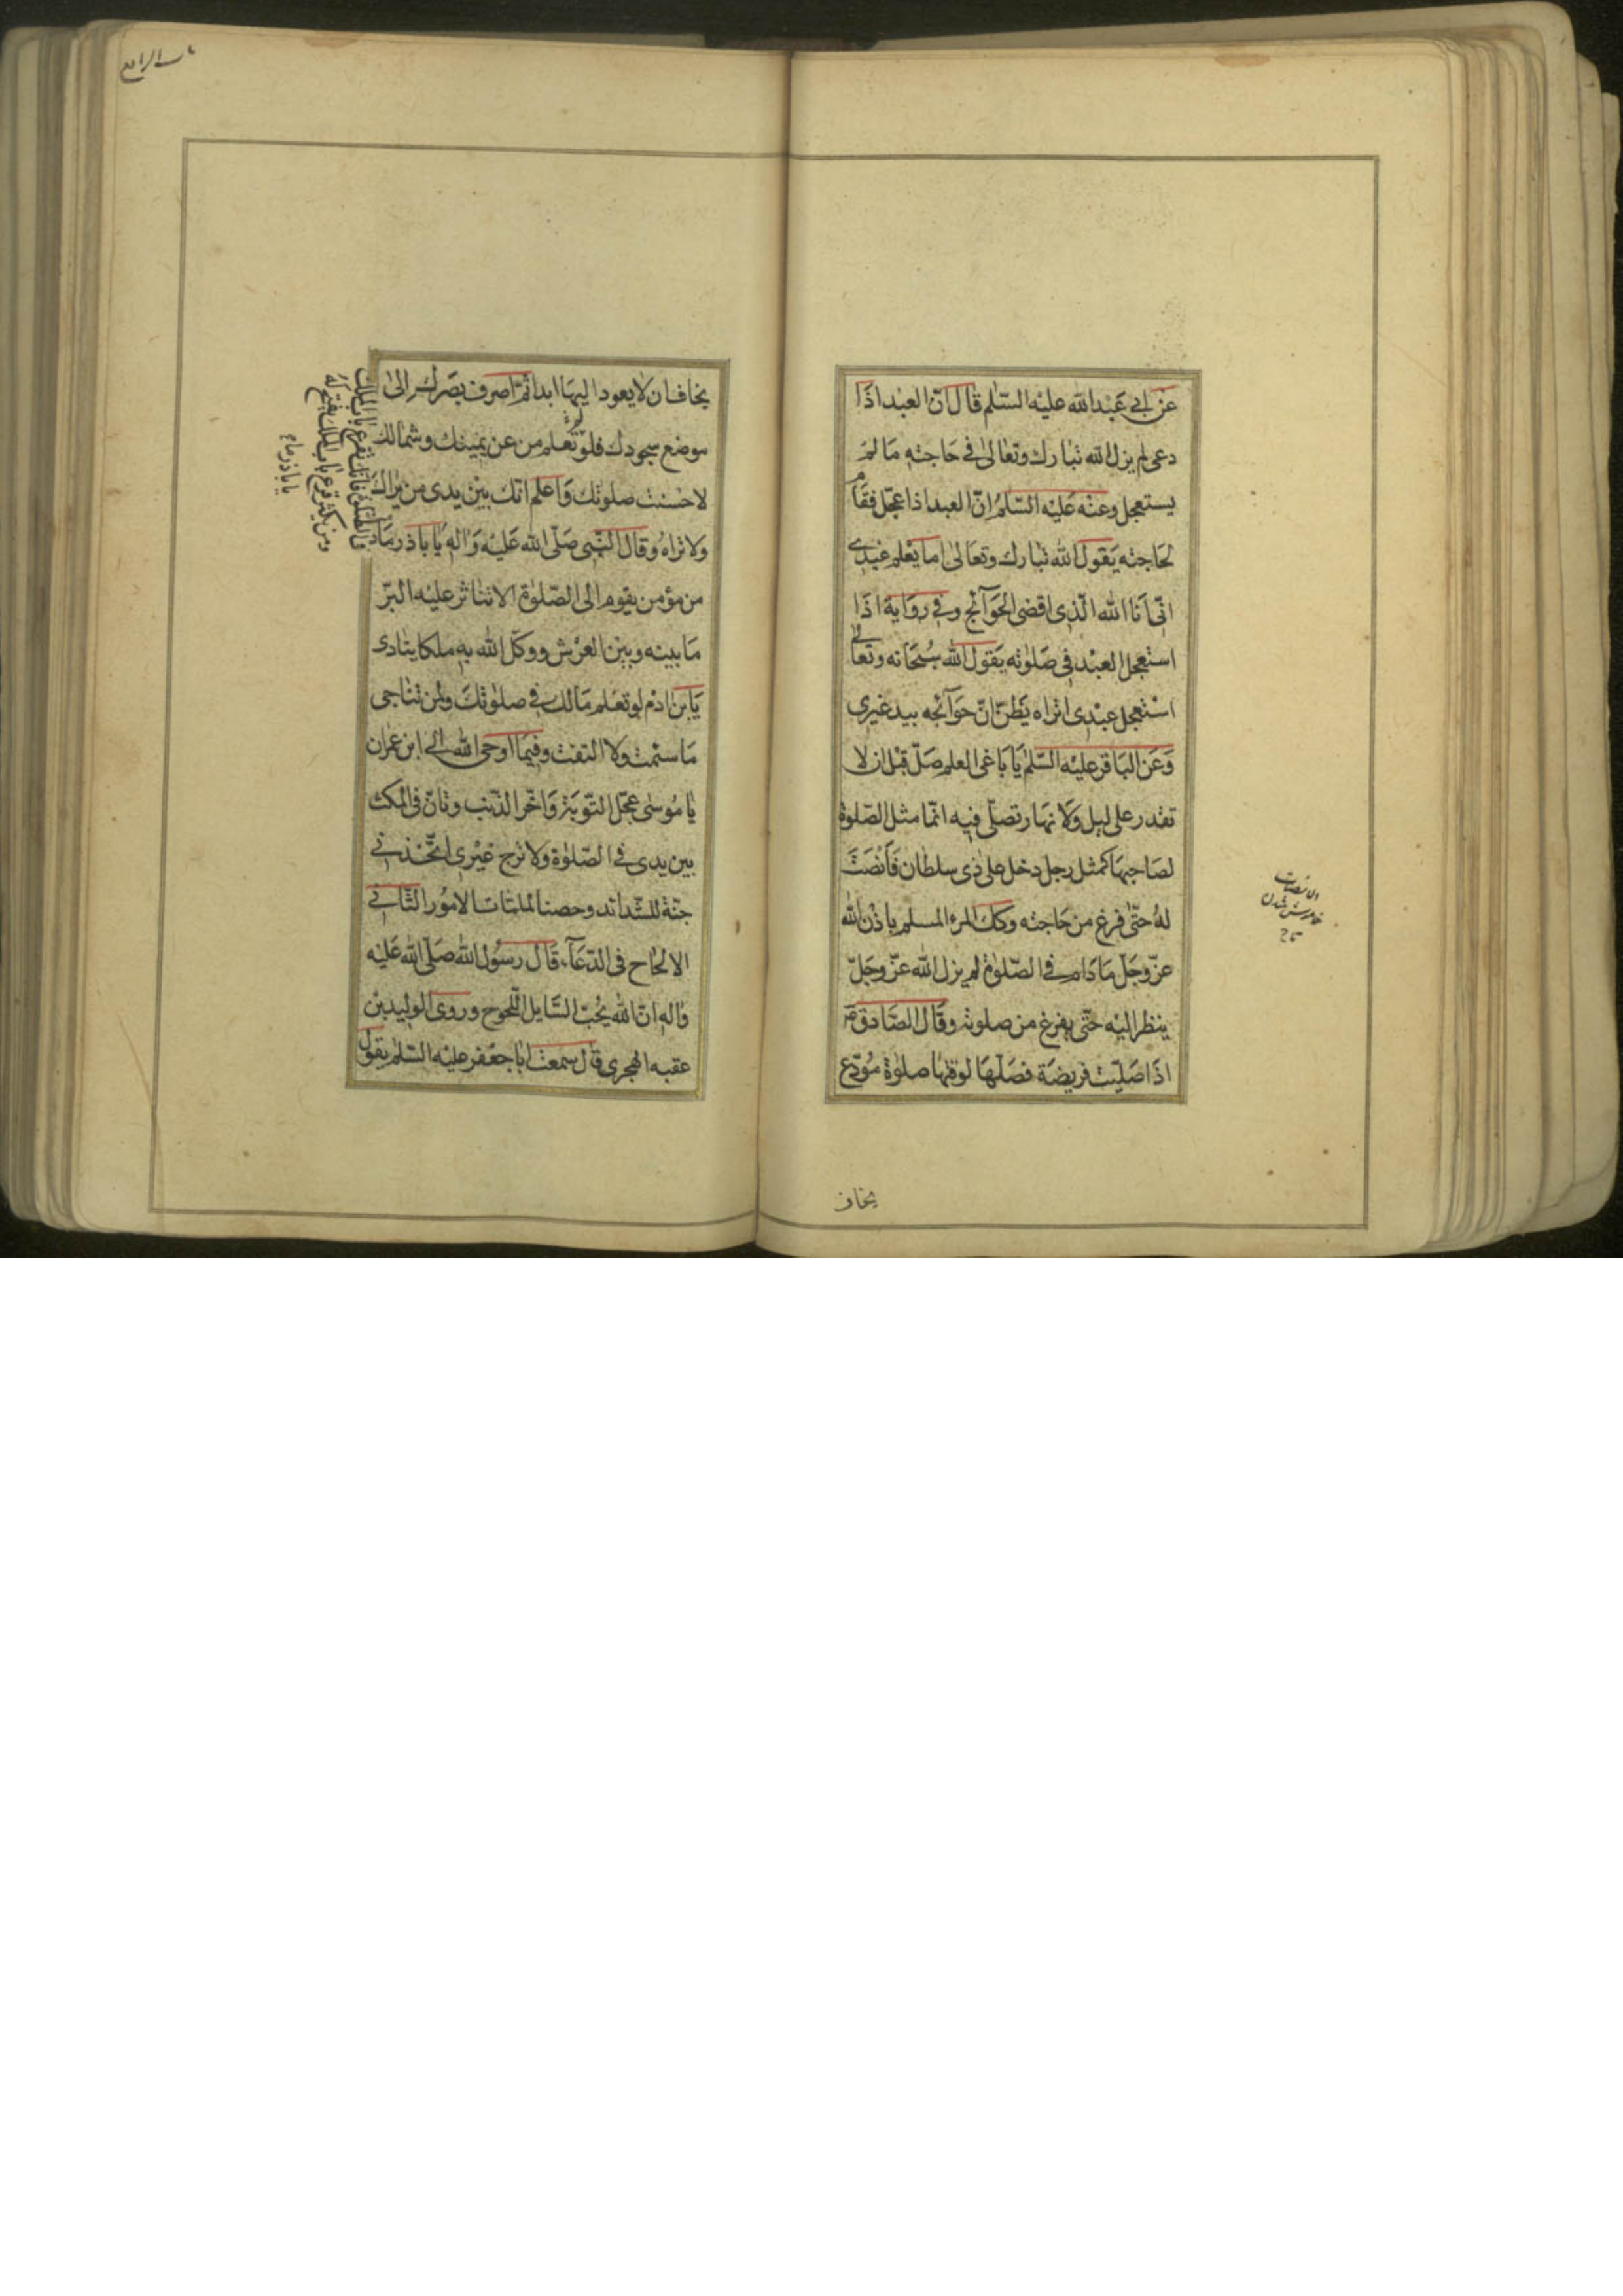 عن ابي عبد الله عليه السّلم قال انّ العبد اذا
دعى لم يزل الله تبارك وتعالى في حاجته ما لم
يستعجل وعنه عليه السّلم انّ العبد اذا عجّل فقام
لحاجته يقول الله تبارك وتعالى اما يعلم عبدى
انّى انا الله الّذى اقضى الحوآئج وفي رواية اذا
استعجل العبد في صلوته يقول الله سبحانه وتعالى
استعجل عبدى اتراه يظنّ انّ حوآئجه بيد غيرى
وعن الباقر عليه السّلم يا باغى العلم صلّ قبل ان لا
تقدر على ليل ولا نهار تصلّى فيه انّما مثل الصّلوة
لصاحبها كمثل رجل دخل على ذى سلطان فانصت
له حتّى فرغ من حاجته وكك المرء المسلم باذن الله
عزّ وجلّ ما دام في الصّلوة لم يزل الله عزّ وجلّ
ينظر اليه حتّى يفرغ من صلوته وقال الصّادق ع
اذا صلّيت فريضة فصلّها لوقتها صلوة مودّع
الانصات
خاموش شدن
تاج
يخاف
باب الرابع
يخاف ان لا يعود اليها ابدا ثمّ اصرف بصرك الى
موضع سجودك فلو تعلم من عن يمينك وشمالك
لاحسنت صلوتك واعلم انّك بين يدى من يراك
ولا تراه وقال النّبى صلّى الله عليه واله يا باذر ما
من مؤمن يقوم الى الصّلوة الا تناثر عليه البرّ
ما بينه وبين العرش ووكّل الله به ملكا ينادى
يابن ادم لو تعلم مالك في صلوتك ولمن تناجى
ما سئمت ولا التفت وفيما اوحى الله الى ابن عمران
يا موسى عجّل التّوبة واخّر الذّنب وتانّ في المكث
بين يدى في الصّلوة ولا ترج غيرى اتّخذنى
جنّة للشّدائد وحصنا لملمّات الامور الثّانى
الالحاح في الدّعآء قال رسول الله صلّى الله عليه
واله انّ الله يحبّ السّايل اللّحوح وروى الوليد بن
عقبه الهجرى قال سمعت ابا جعفر عليه السّلم يقول
فى الصّلوة فانّك تقرع باب الملك
ومن يكثر قرع باب الملك يفتح له
يا باذر ما